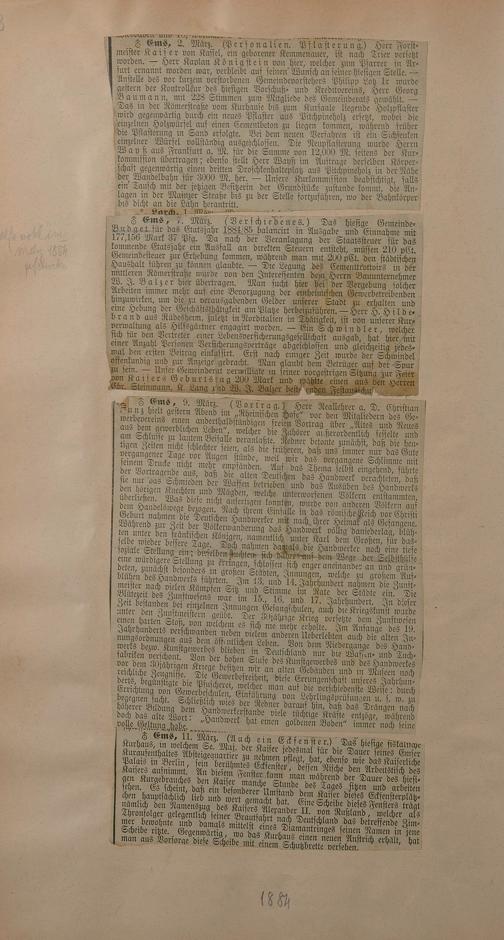 ☿ Ems, 2. März. (Personalien. Pflasterung.) Herr Forst-
meister Kaiser von Kassel, ein geborener Kemmenauer, ist nach Trier versetzt
worden. — Herr Kaplan Königstein von hier, welcher zum Pfarrer in Ar-
furt ernannt worden war, verbleibt auf seinen Wunsch an seiner hiesigen Stelle. —
Anstelle des vor kurzem verstorbenen Gemeindevorstehers Philipp Lotz Ir wurde
gestern der Kontrolleur des hiesigen Vorschuß- und Kreditvereins, Herr Georg
Baumann, mit 228 Stimmen zum Mitgliede des Gemeinderats gewählt. —
Das in der Römerstraße vom Kurhause bis zum Kursaale liegende Holzpflaster
wird gegenwärtig durch ein neues Pflaster aus Pitchpineholz ersetzt, wobei die
einzelnen Holzwürfel auf einen Cementbeton zu liegen kommen, während früher
die Pflasterung in Sand erfolgte. Bei dem neuen Verfahren ist ein Sichsenken
einzelner Würfel vollständig ausgeschlossen. Die Neupflasterung wurde Herrn
Wayß aus Frankfurt a. M. für die Summe von 12,000 M. seitens der Kur-
kommission übertragen; ebenso stellt Herr Wayß im Auftrage derselben Körper-
schaft gegenwärtig einen dritten Droschkenhalteplatz aus Pitchpineholz in der Nähe
der Wandelbahn für 3000 M. her. — Unsere Kurkommission beabsichtigt, falls
ein Tausch mit der jetzigen Besitzerin der Grundstücke zustande kommt, die An-
lagen in der Mainzer Straße bis zu der Stelle fortzuführen, wo der Bahnkörper
bis dicht an die Bahn herantritt.
☿ Ems, 7. März. (Verschiedenes.) Das hiesige Gemeinde-
Budget für das Etatsjahr 1884/85 balancirt in Ausgabe und Einnahme mit
177,156 Mark 37 Pfg. Da nach der Veranlagung der Staatssteuer für das
kommende Etatsjahr ein Ausfall an direkten Steuern entsteht, müssen 210 pCt.
Gemeindesteuer zur Erhebung kommen, während man mit 200 pCt. den städtischen
Haushalt führen zu können glaubte. — Die Legung des Cementtrottoirs in der
mittleren Römerstraße wurde von den Interessenten dem Herrn Bauunternehmer
W. J. Balzer hier übertragen. Man sucht hier bei der Vergebung solcher
Arbeiten immer mehr auf eine Bevorzugung der einheimischen Gewerbetreibenden
hinzuwirken, um die zu verausgabenden Gelder unserer Stadt zu erhalten und
eine Hebung der Geschäftsthätigkeit am Platze herbeizuführen. — Herr H. Hilde-
brand aus Rüdesheim, zuletzt in Norditalien in Thätigkeit, ist von unserer Kur-
verwaltung als Hilfsgärtner engagirt worden. — Ein Schwindler, welcher
sich für den Vertreter einer Lebensversicherungsgesellschaft ausgab, hat hier mit
einer Anzahl Personen Versicherungsverträge abgeschlossen und gleichzeitig jedes-
mal den ersten Beitrag einkassirt. Erst nach einiger Zeit wurde der Schwindel
offenkundig und zur Anzeige gebracht. Man glaubt dem Betrüger auf der Spur
zu sein. — Unser Gemeinderat verwilligte in seiner vorgestrigen Sitzung zur Feier
von Kaisers Geburtstag 200 Mark und wählte einen aus den Herren
Chr. Steinmann, K. Lang und W. J. Balzer bestehenden Festausschuß.
☿ Ems, 9. März. (Vortrag.) Herr Reallehrer a. D. Christian
Kunz hielt gestern Abend im „Rheinischen Hofe“ vor den Mitgliedern des Ge-
werbevereins einen anderthalbstündigen freien Vortrag über „Altes und Neues
aus dem gewerblichen Leben“, welcher die Zuhörer außerordentlich fesselte und
am Schlusse zu lauten Beifalle veranlaßte. Redner betonte zunächst, daß die heu-
tigen Zeiten nicht schlechter seien, als die früheren, daß uns immer nur das Gute
vergangener Tage vor Augen stünde, weil wir das vergangene Schlimme mit
seinem Drucke nicht mehr empfänden. Auf das Thema selbst eingehend, führte
der Vortragende aus, daß die alten Deutschen das Handwerk verachteten, daß
sie nur das Schmieden der Waffen betrieben und das Ausüben des Handwerks
den hörigen Knechten und Mägden, welche unterworfenen Völkern entstammten,
überließen. Was diese nicht anfertigen konnten, wurde von anderen Völkern auf
dem Handelswege bezogen. Nach ihrem Einfalle in das römische Reich vor Christi
Geburt nahmen die Deutschen Handwerker mit nach ihrer Heimat als Gefangene.
Während zur Zeit der Völkerwanderung das Handwerk völlig daniederlag, blüh-
ten unter den fränkischen Königen, namentlich unter Karl dem Großen, für das-
selbe wieder bessere Tage. Doch nahmen damals die Handwerker noch eine tiefe
soziale Stellung ein; dieselben suchten sich daher auf dem Wege der Selbsthülfe
eine würdigere Stellung zu erringen, schlossen sich enger aneinander an und grün-
deten, zunächst besonders in großen Städten, Innungen, welche zu großem Auf-
blühen des Handwerks führten. Im 13. und 14. Jahrhundert nahmen die Zunft-
meister nach vielen Kämpfen Sitz und Stimme im Rate der Städte ein. Die
Blütezeit des Zunftwesens war im 15., 16. und 17. Jahrhundert. In dieser
Zeit bestanden bei einzelnen Innungen Gesangschulen, auch die Kriegskunst wurde
unter den Zunftmeistern geübt. Der 30jährige Krieg versetzte dem Zunftwesen
einen harten Stoß, von welchem es sich nie mehr erholte. Im Anfange des 19.
Jahrhunderts verschwanden neben vielem anderen Ueberlebten auch die alten In-
nungsordnungen aus dem öffentlichen Leben. Von dem Niedergange des Hand-
werks bezw. Kunstgewerbes blieben in Deutschland nur die Waffen- und Tuch-
fabriken verschont. Von der hohen Stufe des Kunstgewerbes und des Handwerkes
vor dem 30jährigen Kriege besitzen wir an alten Gebäuden und in Museen noch
reichliche Zeugnisse. Die Gewerbefreiheit, diese Errungenschaft unseres Jahrhun-
derts, begünstigte die Pfuscherei, welcher man auf die verschiedenste Weise: durch
Errichtung von Gewerbeschulen, Einführung von Lehrlingsprüfungen u. s. w. zu
begegnen sucht. Schließlich wies der Redner darauf hin, daß das Drängen nach
höherer Bildung dem Handwerkerstande viele tüchtige Kräfte entzöge, während
doch das alte Wort: „Handwerk hat einen goldenen Boden“ immer noch seine
volle Geltung habe.
☿ Ems, 11. März. (Auch ein Eckfenster.) Das hiesige fiskalische
Kurhaus, in welchem Se. Maj. der Kaiser jedesmal für die Dauer seines Emser
Kuraufenthaltes Absteigequartier zu nehmen pflegt, hat, ebenso wie das Kaiserliche
Palais in Berlin, sein berühmtes Eckfenster, dessen Nische den Arbeitstisch des
Kaisers aufnimmt. An diesem Fenster kann man während der Dauer des hiesi-
gen Kurgebrauches den Kaiser manche Stunde des Tages sitzen und arbeiten
sehen. Es scheint, daß ein besonderer Umstand dem Kaiser dieses Eckfensterplätz-
chen hauptsächlich lieb und wert gemacht hat. Eine Scheibe dieses Fensters trägt
nämlich den Namenszug des Kaisers Alexander II. von Rußland, welcher als
Thronfolger gelegentlich seiner Brautfahrt nach Deutschland das betreffende Zim-
mer bewohnte und damals mittelst eines Diamantringes seinen Namen in jene
Scheibe ritzte. Gegenwärtig, wo das Kurhaus einen neuen Anstrich erhält, hat
man aus Vorsorge diese Scheibe mit einem Schutzbrette versehen.
1884